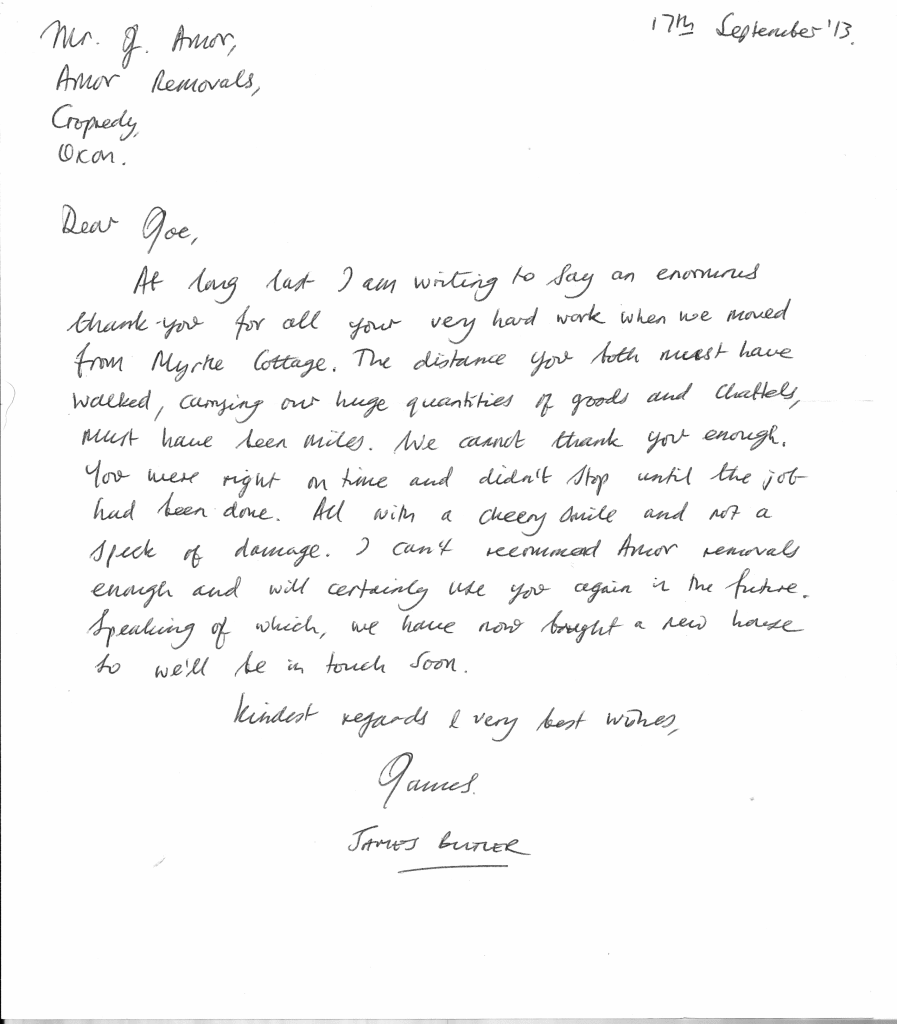 17th September '13.
Mr. J. Amor,
Amor Removals,
Cropredy,
Oxon.
Dear Joe,
At long last I am writing to say an enormous
thank-you for all your very hard work when we moved
from Myrtle Cottage. The distance you both must have
walked, carrying our huge quantities of goods and chattels,
must have been miles. We cannot thank you enough.
You were right on time and didn't stop until the job
had been done. All with a cheery smile and not a
speck of damage. I can't recommend Amor removals
enough and will certainly use you again in the future.
Speaking of which, we have now bought a new house
so we'll be in touch soon.
Kindest regards & very best wishes,
James.
JAMES BUTLER